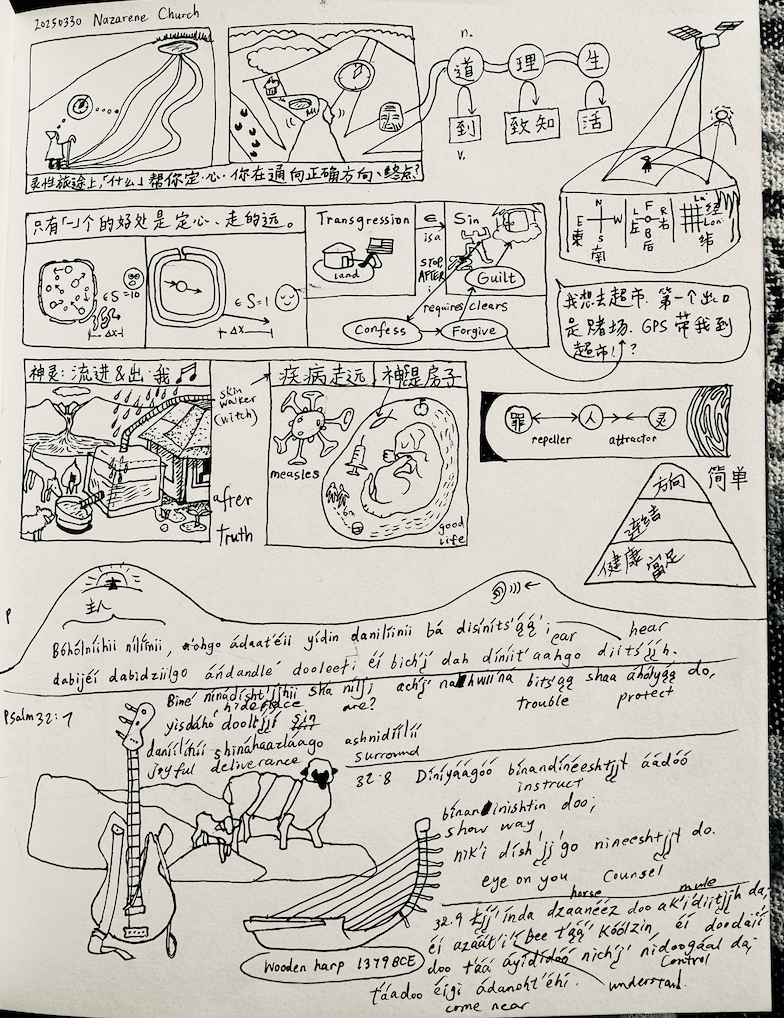 20250330 Nazarene Church
n.
道 理 生
到 致知 活
v.
灵性旅途上,「什么」帮你定心.你在通向正确方向、终点?
N
E W
東
S
南
F
L R
左 右
B
后
La:
经
Lon:
纬
只有「一」个的好处是定心、走的远。
∈S=10
Δx
∈S=1
Δx
Transgression
Land
∈
isa
STOP
AFTER
:
Sin
Guilt
requires clears
Confess
Forgive
我想去超市.第一个出口
是赌场. GPS 带我到
超市!?
神灵:流进&出·我
skin
walker
(witch)
after
truth
疾病走远 神是房子
measles
6m
good
life
罪 人 灵
repeller attractor
简单
方向
连结
健康 富足
主人
Bóhólníihii nílíinii, aohgo ádaat'éii yídin daniliinii bá disíníts'ą́ą́';
ear hear
dabijéí dabidziilgo áńdandle' dooleeł; éí bich'į' dah díníit'aahgo diits'į́įh.
Psalm 32:7
Biné' nínádísht'į́įhii shá nílį; achį́ nahwii'na bits'ą́ą́ shaa áhályą́ą do,
hideplace are? trouble protect
yisdáhó' doolt'į́į́ł sin
daniilíinii shináhaazláago ashnidiilíí
joyful deliverance surround
32:8 Díníyáágóó bínandíneeshtįįł áádóó
instruct
bínanínishtin doo;
show way
nik'i dísh'į́į́'go nineeshtįįł do.
eye on you counsel
horse mule
32:9 Łį́į́' índa dzaanééz doo ak'i'diitį́įh da;
éí azáát'i'í bee t'áá' kóólzin, éí doodaii
doo t'áá áyídídóó nich'į' nidoogáal da;
control
t'áadoo éígi ádanoht'éhí.
understand
come near
Wooden harp 1379BCE